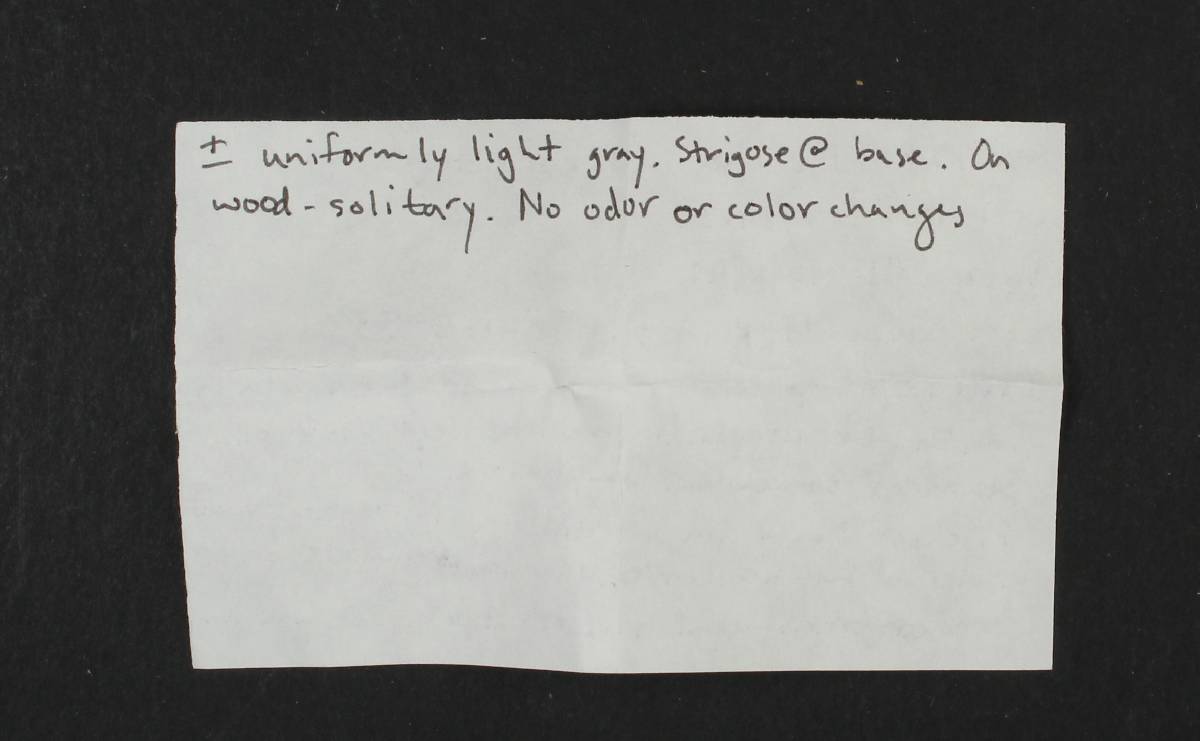 ± uniformly light gray. Strigose @ base. On
wood - solitary. No odor or color changes